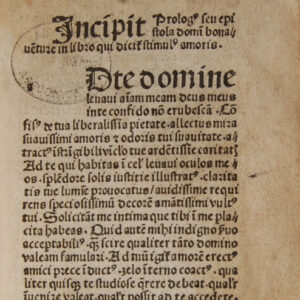 Incipit Prologꝰ seu epi
stola domī bona
vēture in libro qui dicit᷑ stimulꝰ amoris.
Dte domine
leuaui aīam meam deus meus
inte confido nō erubescā. Cō
fisꝰ de tua liberalissīa pietate. allectus mira
suauissimi amoris & odoris tui suauitate. a
tractꝰ īstrīgibili vīclo tue ardētissīe caritatꝭ
Ad te qui habitas ī celꝭ leuaui oculos me
os. splēdore solis iusticie illustratꝰ. claritatis
tue lumīe prouocatus/ auidissime requi
rens speciosissimū decorē amātissimi vultꝰ
tui. Solicitāt me intima que tibi ī me pla
cita habeas. Quid autē mihi indigno fuo
acceptabilꝰ. qͣꝫ scire qualiter tāto domino
valeam famulari. Ad tuū igit᷑ amorē erect
amici prece īductꝰ. zelo īterno coactꝰ. qua
liter quisqꝫ te studiose q̄rere debeat. qua
uenire valeat. qualr̄ possit ad te accede